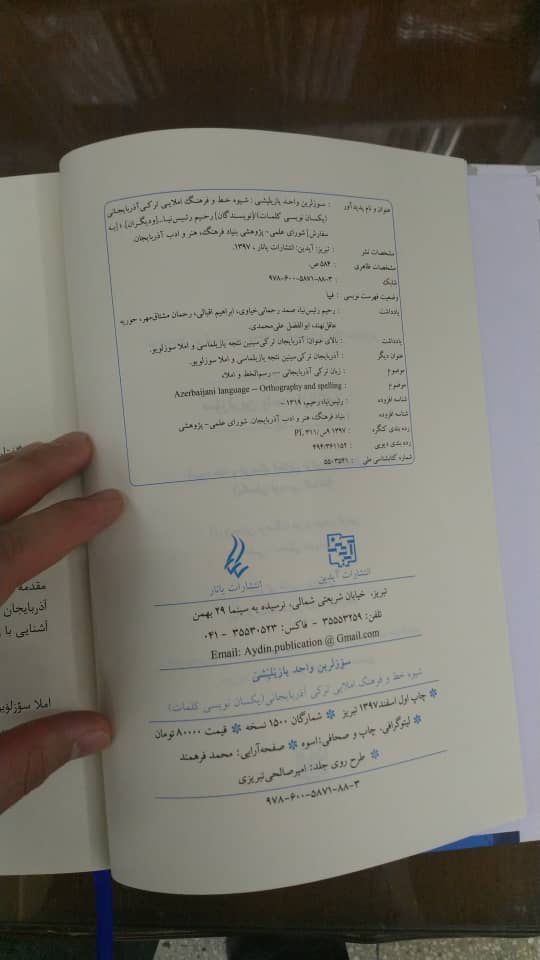 عنوان و نام پدیدآور : سوزلرین واحد یازیلیشی: شیوه خط و فرهنگ املایی ترکی آذربایجانی
(یکسان نویسی کلمات)/[نویسندگان] رحیم رئیس‌نیا...[ودیگران]؛ [به
سفارش] شورای علمی- پژوهشی بنیاد فرهنگ، هنر و ادب آذربایجان.
مشخصات نشر : تبریز: آیدین: انتشارات یانار، ۱۳۹۷.
مشخصات ظاهری : ۵۸۴ص.
شابک : ۹۷۸-۶۰۰-۵۸۷۱-۸۸-۳
وضعیت فهرست نویسی : فیپا
یادداشت : رحیم رئیس‌نیا، صمد رحمانی‌خیاوی، ابراهیم اقبالی، رحمان مشتاق‌مهر، حوریه
عاقل‌نهند، ابوالفضل علی‌محمدی.
یادداشت : بالای عنوان: آذربایجان ترکی‌سینین نئجه یازیلماسی و املا سوزلویو.
عنوان دیگر : آذربایجان ترکی‌سینین نئجه یازیلماسی و املا سوزلویو.
موضوع : زبان ترکی آذربایجانی -- رسم‌الخط و املاء
موضوع : Azerbaijani language -- Orthography and spelling
شناسه افزوده : رئیس‌نیا، رحیم، ۱۳۱۹ -
شناسه افزوده : بنیاد فرهنگ، هنر و ادب آذربایجان. شورای علمی- پژوهشی
رده بندی کنگره : ۱۳۹۷ ۹س/۳۱۱/PL
رده بندی دیویی : ۴۹۴/۳۶۱۱۵۲
شماره کتابشناسی ملی : ۵۵۰۳۵۴۱
انتشارات آیدین
انتشارات یانار
تبریز، خیابان شریعتی شمالی، نرسیده به سینما ۲۹ بهمن
تلفن: ۳۵۵۵۳۲۵۹ - فاکس: ۳۵۵۳۰۵۲۳ - ۰۴۱
Email: Aydin.publication @ Gmail.com
سؤزلرین واحد یازیلیشی
شیوه خط و فرهنگ املایی ترکی آذربایجانی (یکسان نویسی کلمات)
چاپ اول اسفند۱۳۹۷ تبریز * شمارگان ۱۵۰۰ نسخه * قیمت ۸۰۰۰۰ تومان
* لیتوگرافی، چاپ و صحافی: اسوه * صفحه‌آرایی: محمد فرهمند
* طرح روی جلد: امیرصالحی‌تبریزی
۹۷۸-۶۰۰-۵۸۷۱-۸۸-۳
مقدمه
آذربایجان
آشنایی با
املا سؤزلویو